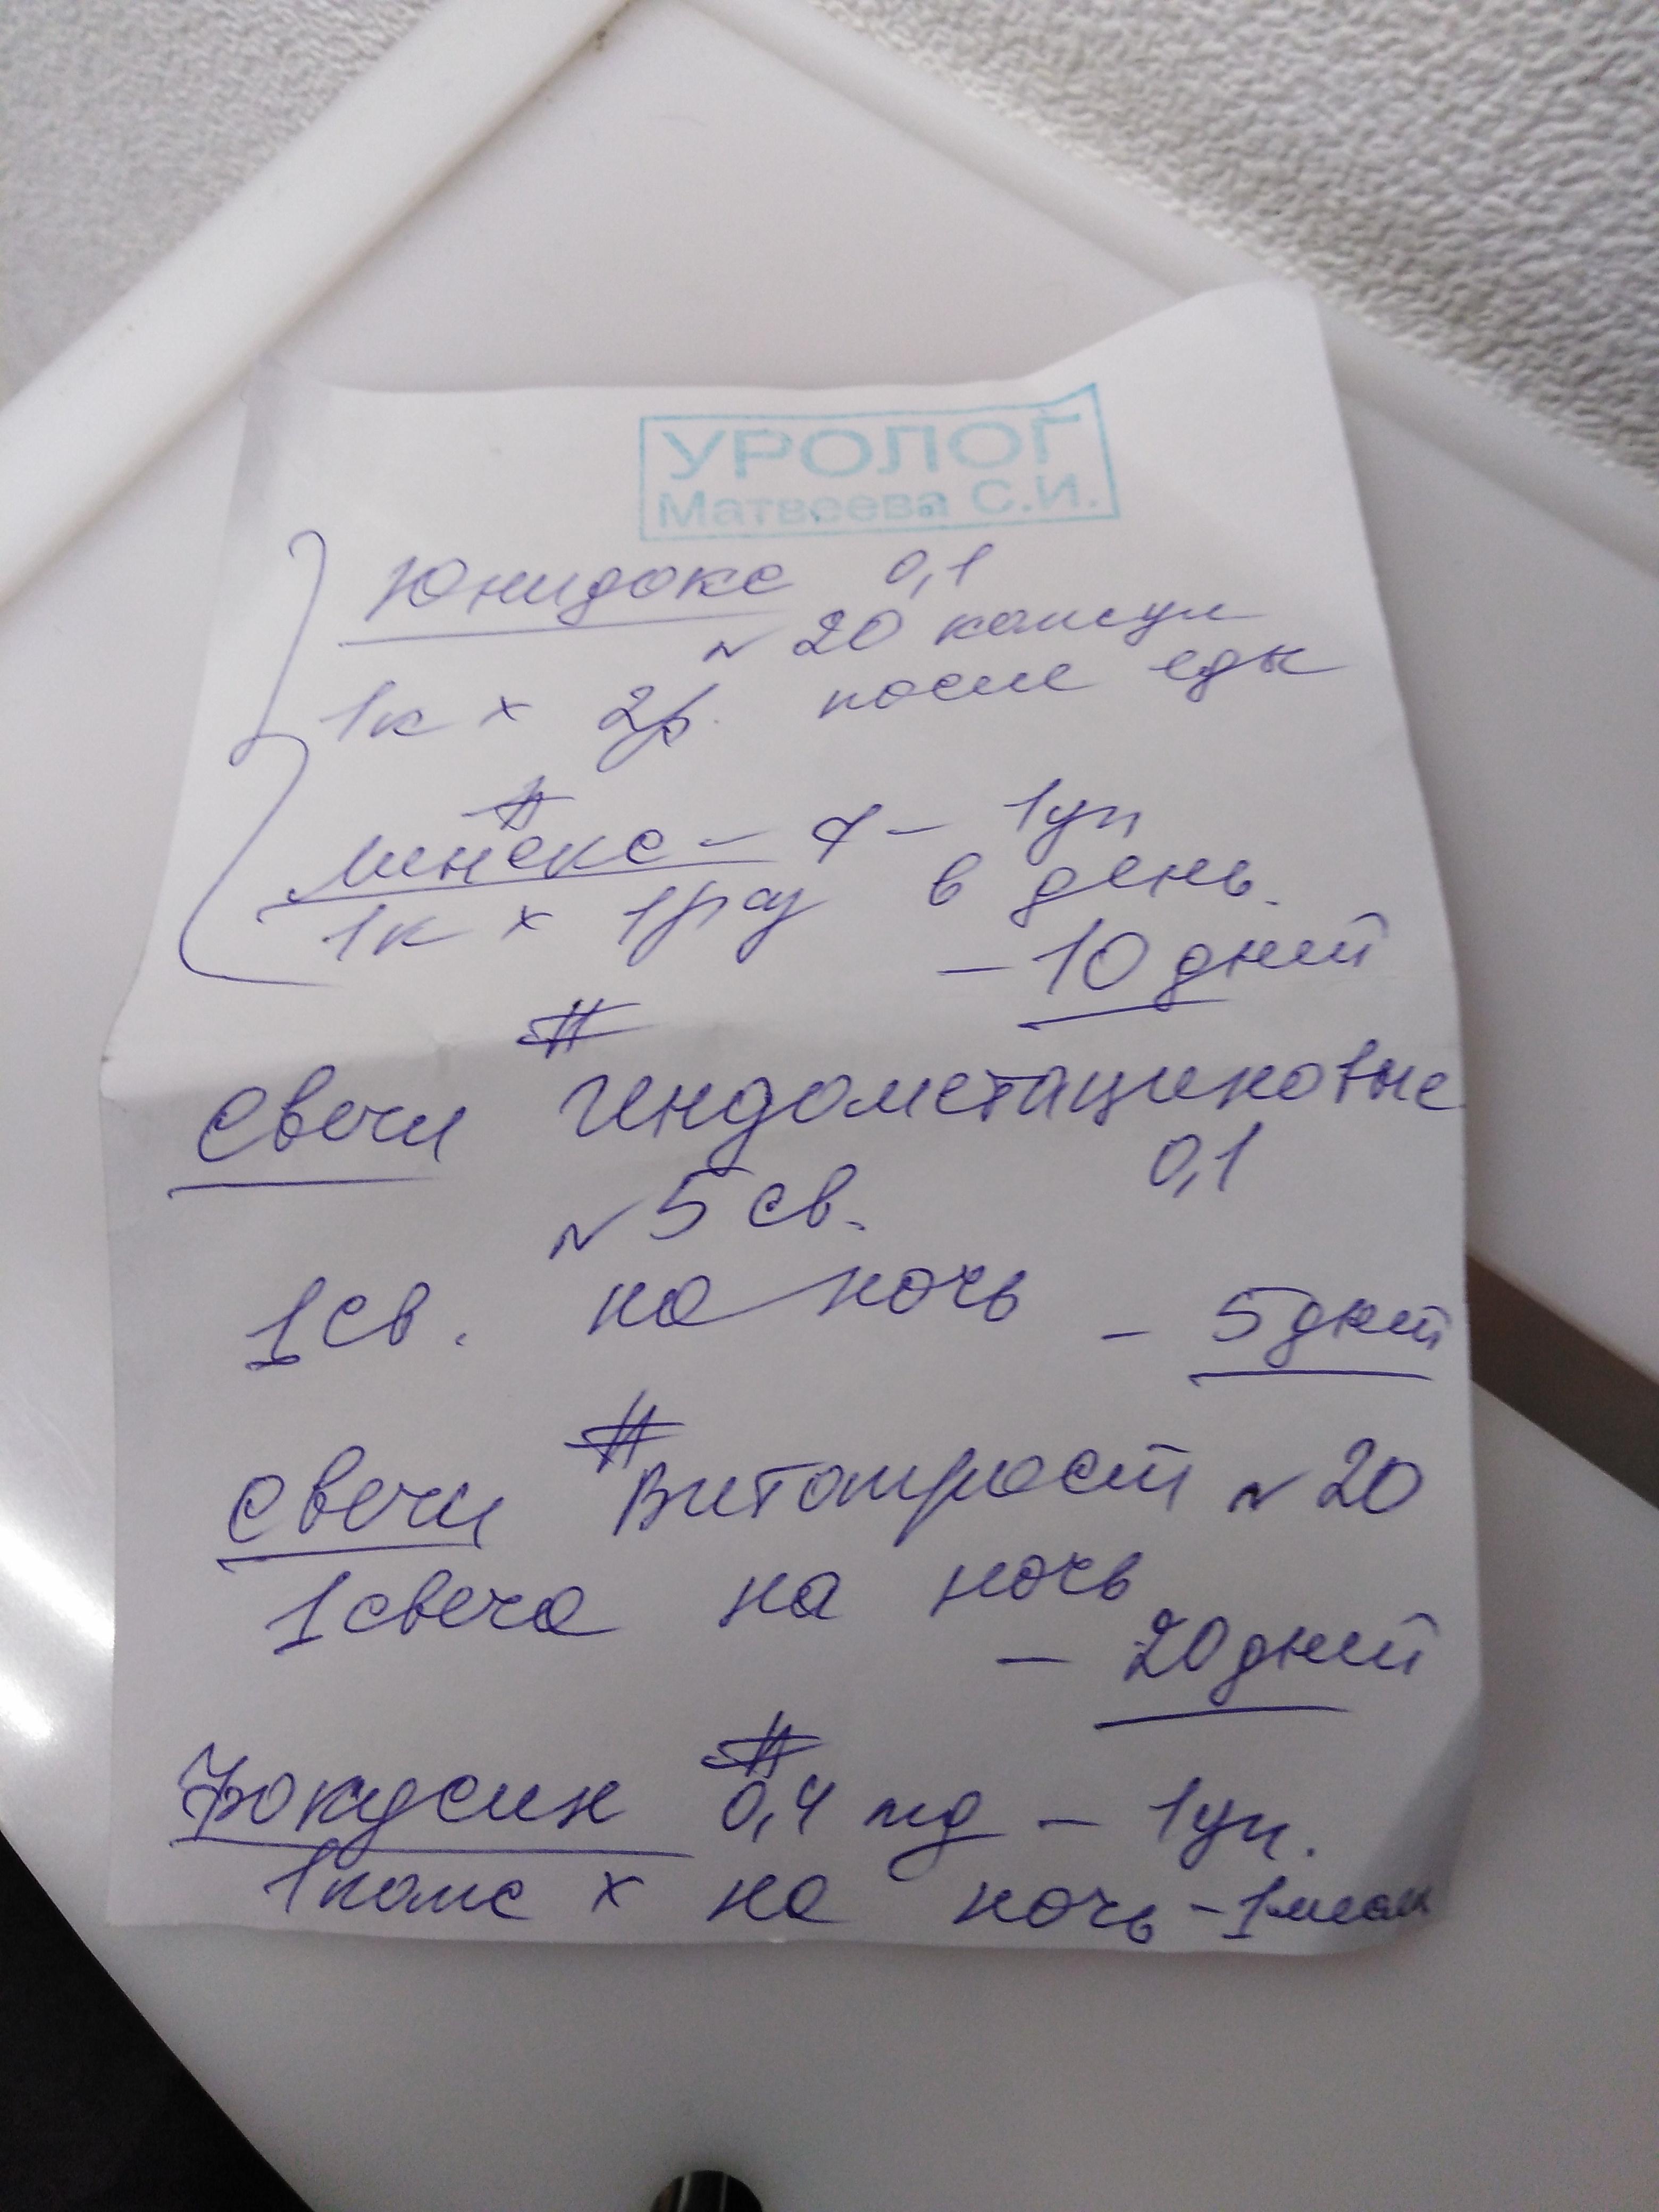 УРОЛОГ
Матвеева С.И.
Юнидокс 0,1
N 20 капсул
1к × 2р. после еды
#
Линекс - 1уп
1к × 1раз в день.
- 10 дней
#
Свечи индометациновые
0,1
N 5 св.
1 св. на ночь - 5 дней
#
Свечи Витапрост N 20
1 свеча на ночь
- 20 дней
#
Фокусин 0,4 mg - 1уп.
1 капс × на ночь - 1 мес